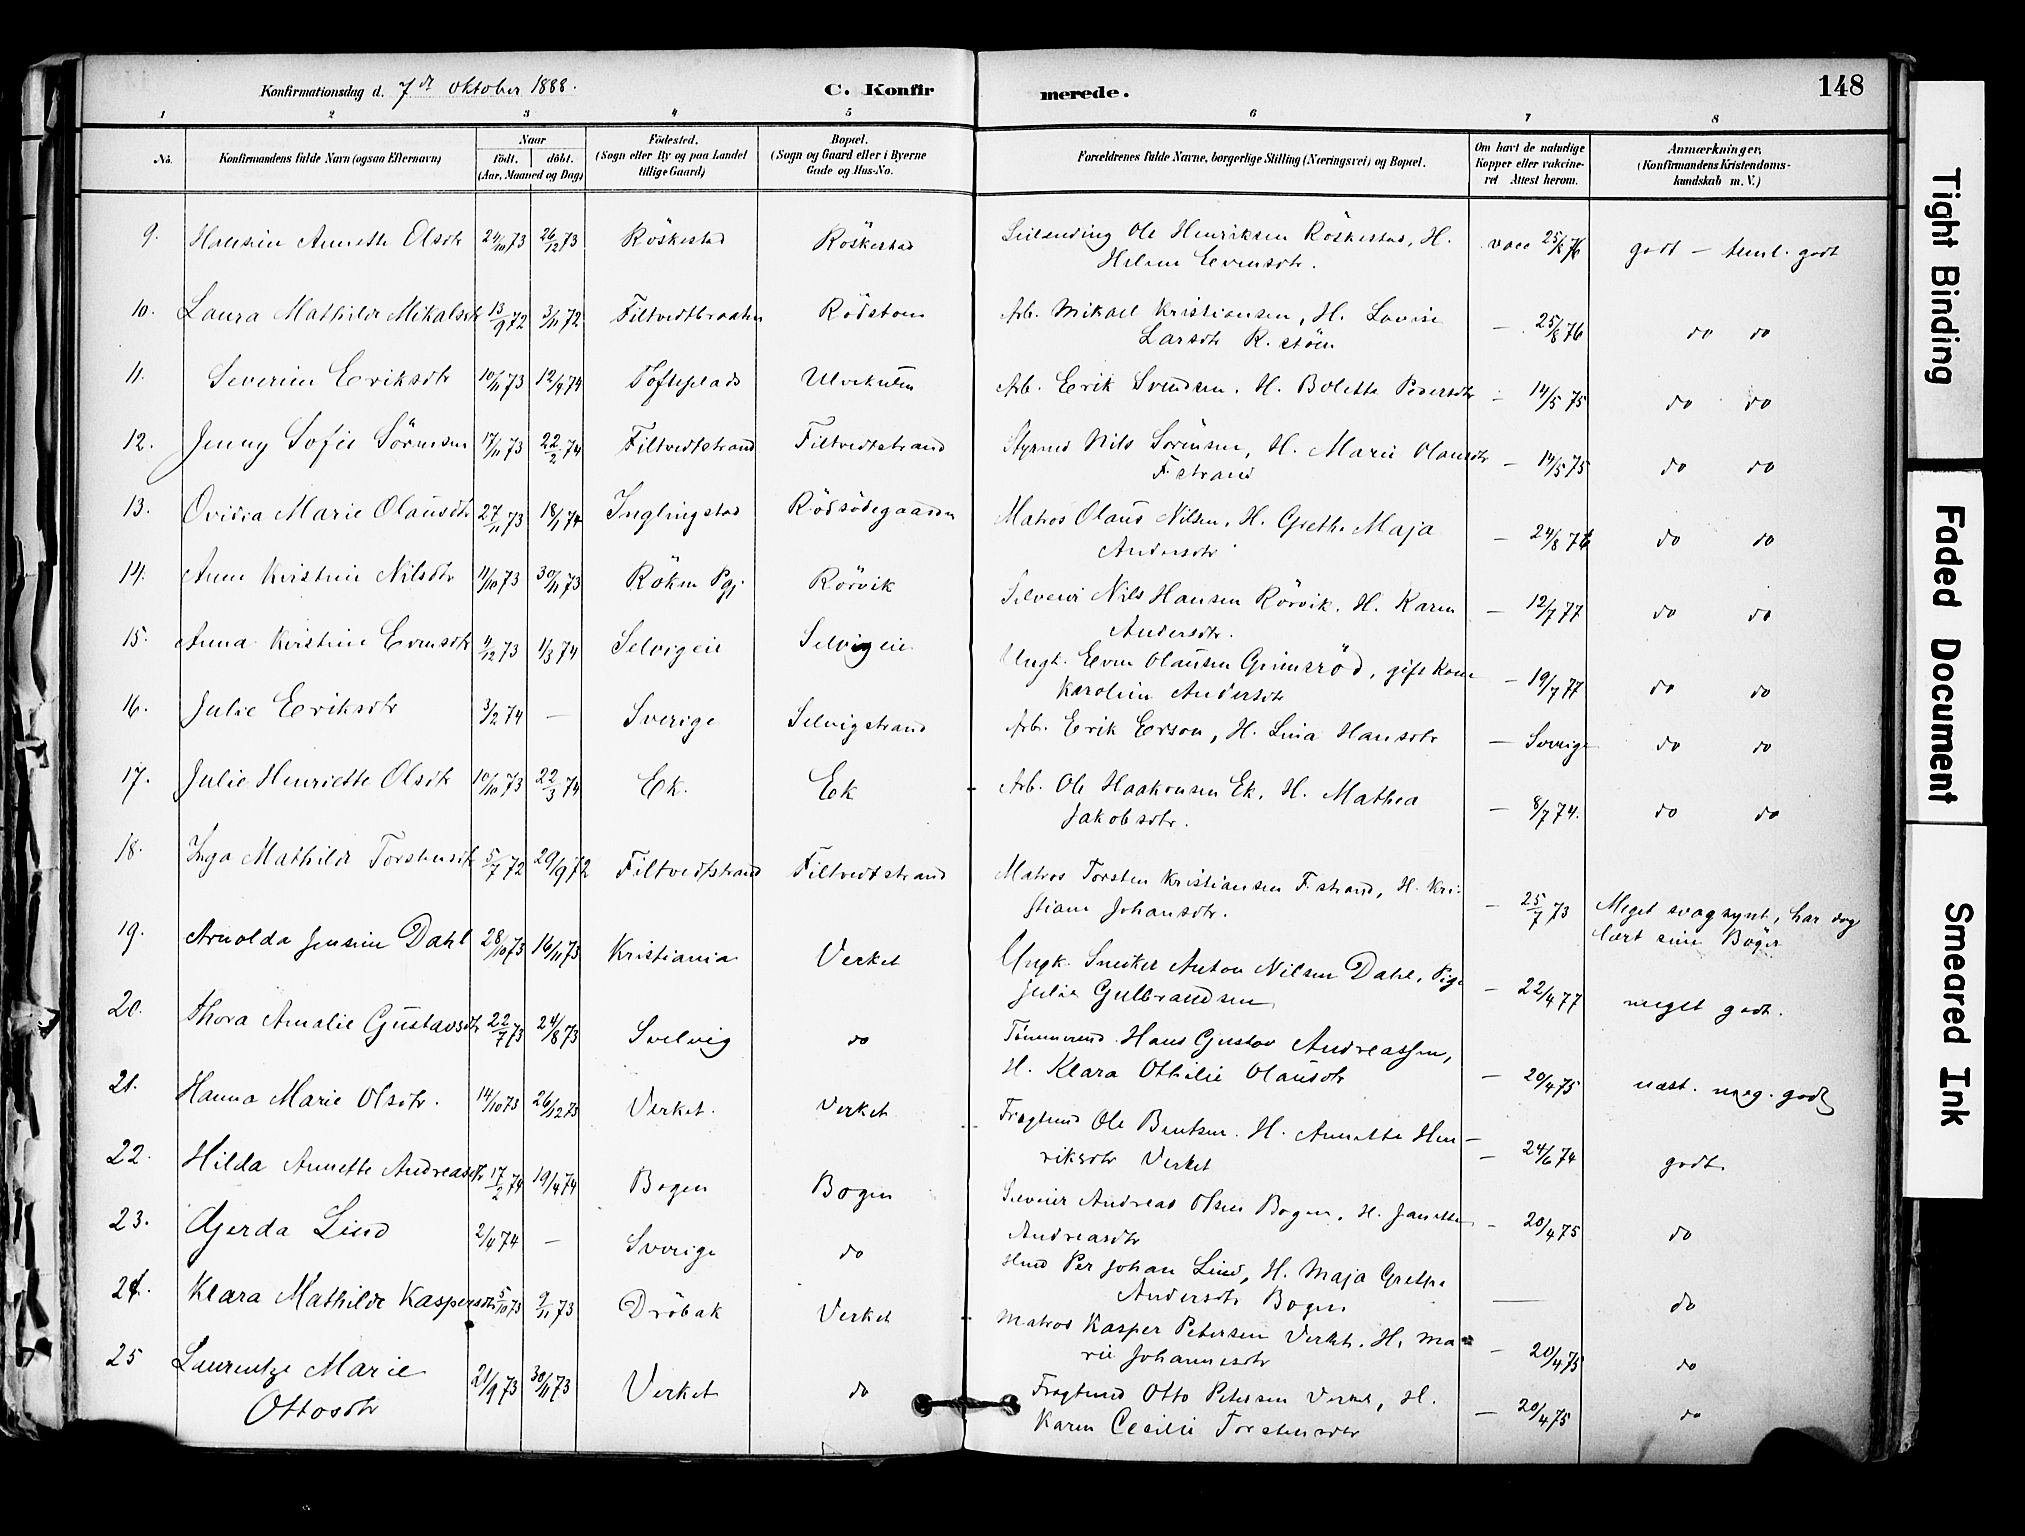 Konfirmationsdag d. 7de Oktober 1888.
C. Konfirmerede.
148
1 2 3 4 5 6 7 8
No.
Konfirmandens fulde Navn (ogsaa Efternavn)
Naar
födt. döbt.
(Aar, Maaned og Dag)
Födested.
(Sogn eller By og paa Landet
tillige Gaard)
Bopæl.
(Sogn og Gaard eller i Byerne
Gade og Hus-No.
Forældrenes fulde Navne, borgerlige Stilling (Næringsvei) og Bopæl.
Om havt de naturlige
Kopper eller vakcine-
ret Attest herom.
Anmærkninger,
(Konfirmandens Kristendoms-
kundskab m. V.)
9. Annette Olsdtr 24/10 73 26/12 73 Röskestad Röskestad Ole Henriksen Röskestad, H. vacc 25/8 76 godt — teml. godt
Helene Evensdtr.
10. Laura Mathilde Mikalsdtr 13/9 72 3/11 72 Filtvedtbraaten Rödstöen Arb. Mikael Kristiansen, H. Lovise — 25/8 76 do do
Larsdtr R. stöen
11. Severine Eriksdtr 10/11 73 12/4 74 Tofteplads Arb. Erik Svendsen, H. Bolette Pedersdtr — 14/5 75 do do
12. Jenny Sofie Sörensen 17/11 73 22/2 74 Filtvedtstrand Filtvedtstrand Styrmd Nils Sörensen, H. Marie Olausdtr — 14/5 75 do do
F. strand
13. Ovidia Marie Olausdtr 27/11 73 18/1 74 Inglingstad Rödsödegaarden Matros Olaus Nilsen, H. Grethe Maja — 24/8 76 do do
Andersdtr
14. Anne Kristine Nilsdtr 11/10 73 30/11 73 Röken Pgj Rörvik Selveier Nils Hansen Rörvik, H. Karen — 12/7 77 do do
Andersdtr.
15. Anna Kristine Evensdtr 11/12 73 1/3 74 Selvigeie Selvigeie Ungk. Even Olausen Grimsröd, gift Kone — 19/7 77 do do
Karoline Andersdtr
16. Julie Eriksdtr 3/2 74 — Sverige Selvigstrand Arb. Erik Erson, H. Lina Hansdtr — Sverige do do
17. Julie Henriette Olsdtr 10/10 73 22/3 74 Ek. Ek Arb. Ole Haakonsen Ek, H. Mathea — 8/7 74. do do
Jakobsdtr.
18. Inga Mathilde Torstensdtr 5/7 72 29/9 72 Filtvedtstrand Filtvedtstrand Matros Torsten Kristiansen F. strand, H. Kri- — 25/7 73 Meget svagsynt, har dog
stiane Johansdtr. lært sine Böger
19. Arnolda Jensine Dahl 28/10 73 16/11 73 Kristiania Verket Ungk. Snedker Anton Nilsen Dahl, Pige — 22/4 77 meget godt.
Julie Gulbrandsen
20. Thora Amalie Gustavsdtr 22/7 73 24/8 73 Svelvig do Tömmermd Hans Gustav Andreassen,
H. Klara Othilie Olausdtr — 20/4 75 næst. meg. godt
21. Hanna Marie Olsdtr. 14/10 73 26/12 73 Verket. Verket Fragtmd Ole Bentsen. H. Annette Hen-
riksdtr Verket — 24/6 74 godt
22. Hilda Annette Andreasdtr 17/2 74 19/4 74 Bogen Bogen Selveier Andreas Olsen Bogen, H. Janette — 20/4 75 do
Andreasdtr
23. Gjerda Lind 2/4 74 — Sverige do Hmd Per Johan Lind, H. Maja Grethe
Andersdtr Bogen — do
24. Klara Mathilde Kaspersdtr 5/10 73 9/11 73 Dröbak Verket Matros Kasper Petersen Verket. H. Ma-
rie Johannesdtr — 20/4 75 do
25 Laurentze Marie 21/9 73 30/11 73 Verket do Fragtmd Otto Petersen Verket, H. — 20/4 75 do
Ottosdtr Karen Cecilie Torstensdtr
Tight Binding
Faded Document
Smeared Ink